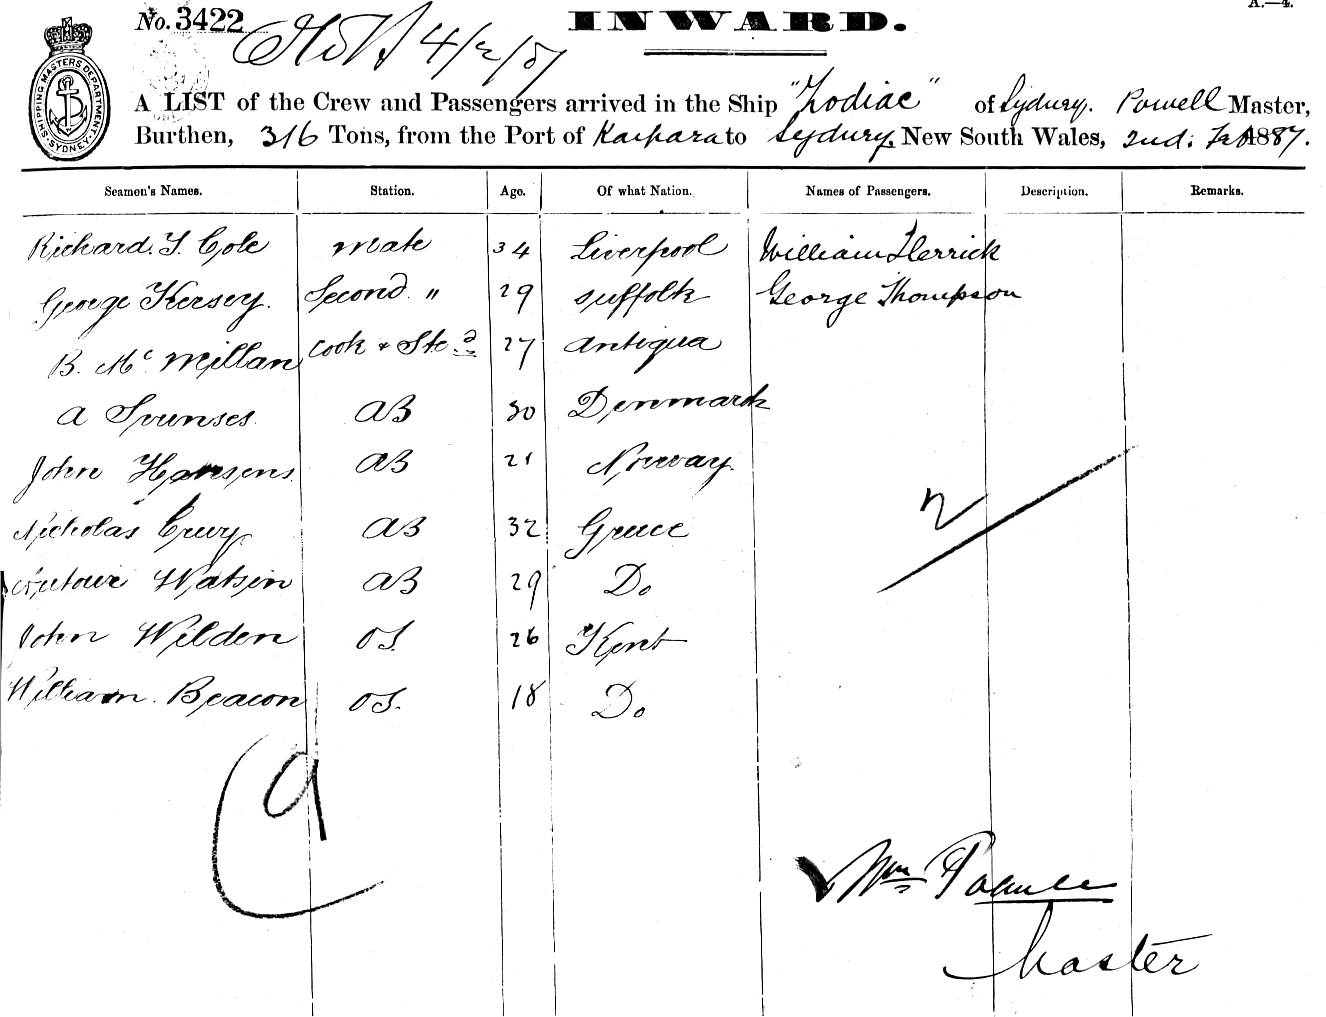 A.—4.
No. 3422 INWARD.
4/2/87
SHIPPING MASTERS DEPARTMENT SYDNEY
A LIST of the Crew and Passengers arrived in the Ship "Zodiac" of Sydney. Powell Master,
Burthen, 316 Tons, from the Port of Kaipara to Sydney, New South Wales, 2nd: Feb 1887.
Seamen's Names. Station. Age. Of what Nation. Names of Passengers. Description. Remarks.
Richard. T. Cole Mate 34 Liverpool William Herrick
George Kersey. Second " 29 Suffolk George Thompson
B. Mc Millan Cook & Std 27 Antigua
A AB 30 Denmark
John Hansens AB 21 Norway.
Nicholas AB 32 Greece
Watsin AB 29 Do
John Wilden OS. 26 Kent
William. Beacon OS. 18 Do
2
9
Wm Powell
Master